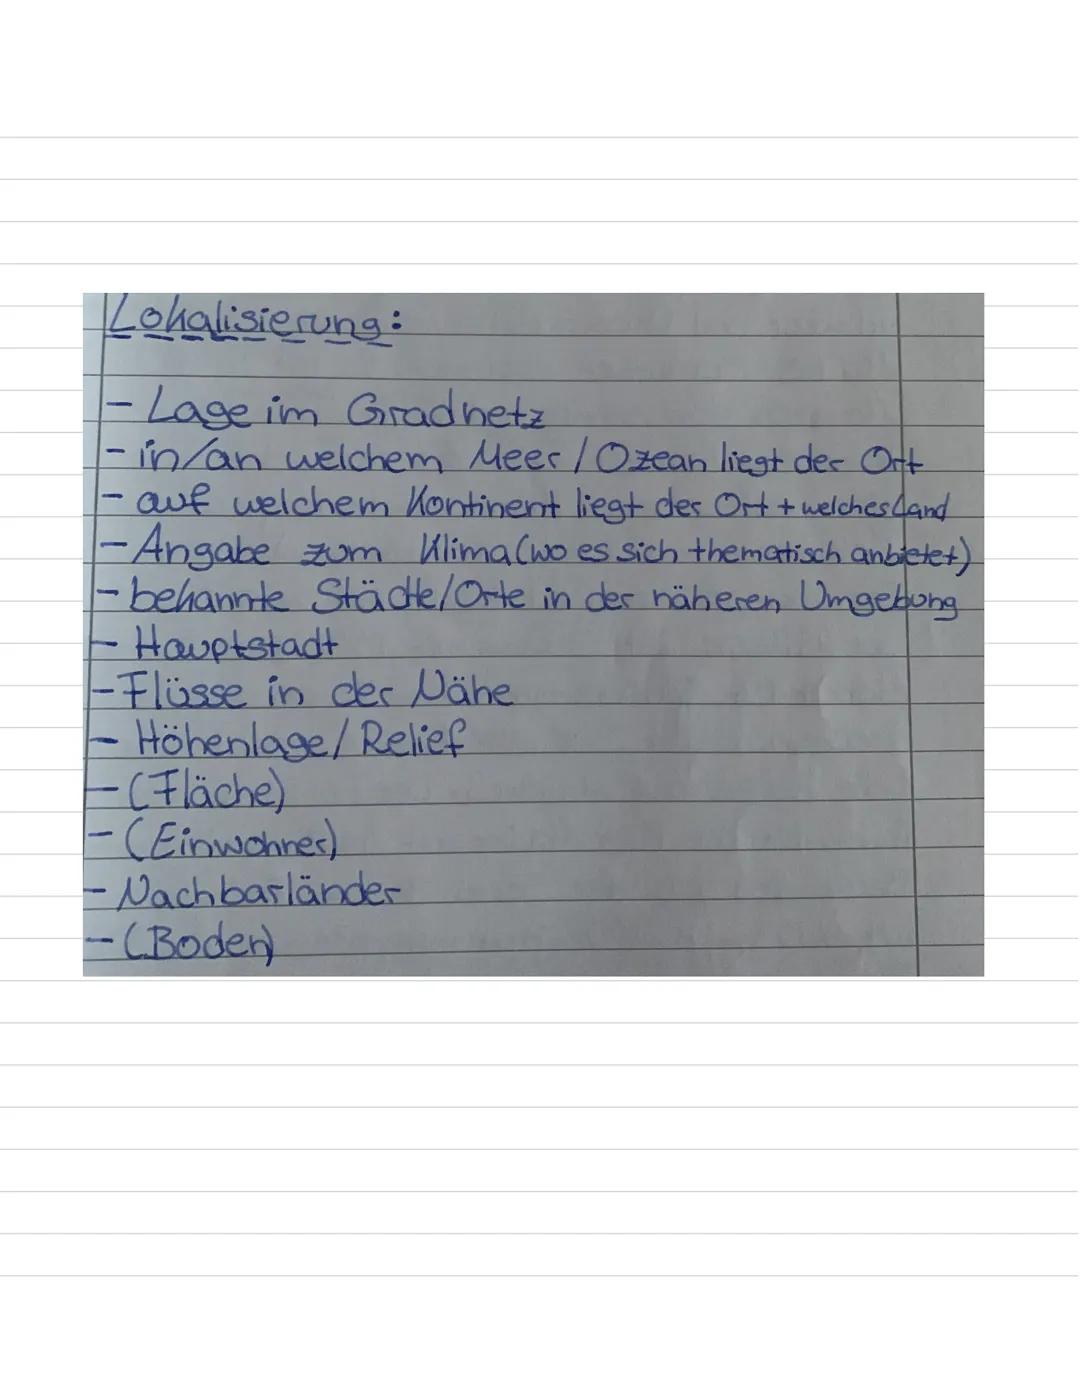 Lokalisierung:
- Lage im Gradnetz
- in/an welchem Meer / Ozean liegt der Ort
- auf welchem Kontinent liegt der Ort + welches Land
- Angabe zum Klima (wo es sich thematisch anbietet)
- bekannte Städte/Orte in der näheren Umgebung
- Hauptstadt
- Flüsse in der Nähe
- Höhenlage / Relief
- (Fläche)
- (Einwohner)
- Nachbarländer
- (Boden)